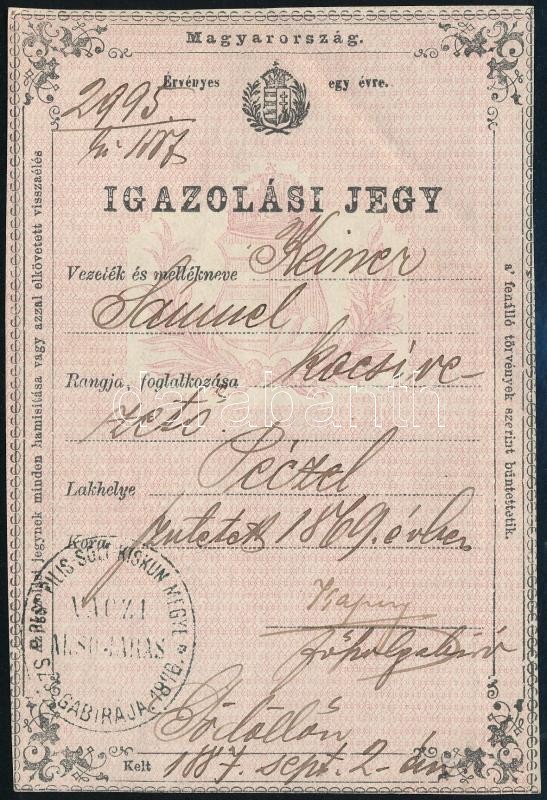 Magyarország.
Érvényes egy évre.
2995
1887
IGAZOLÁSI JEGY
Vezeték és mellékneve Keiner
Samuel
Rangja, foglalkozása kocsive-
zető
Lakhelye Péczel
Kora született 1869. évben
főszolgabíró
Gödöllőn
Kelt 1887 sept. 2-án
jegynek minden hamisítása vagy azzal elkövetett visszaélés
a' fenálló törvények szerint büntettetik.
PEST PILIS SOLT KISKUN MEGYE
VÁCZI
ALSÓ JÁRÁS
darabanth